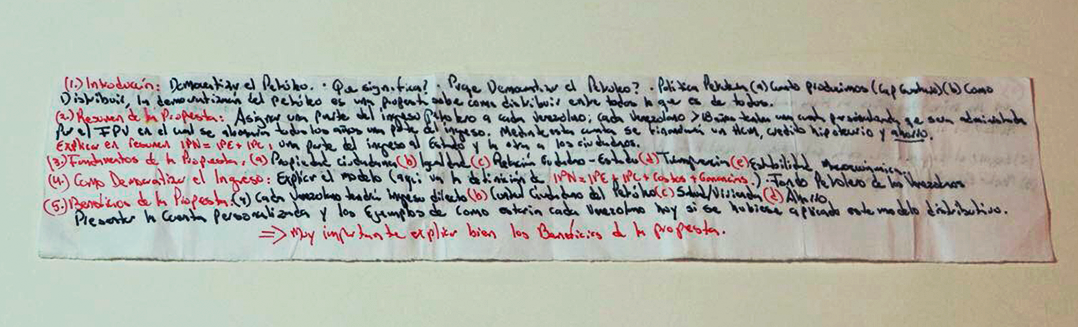 (1.) Introducción: Democratizar el Petróleo. · Que significa? · Porqe Democratizar el Petroleo? · Política Petrolera (a) Cuanto producimos (b) Como
Distribuir, la democratización del petróleo es una propuesta sobre como distribuir entre todos lo qe es de todos.
(2.) Resumen de la Propuesta: Asignar una parte del ingreso petrolero a cada venezolano, cada venezolano > 18 años tendra una cuenta personalizada qe sera administrada
Por el FPV en el cual se ahorrarán todos los años una parte del ingreso. Mediante esta cuenta se financiará un HCM, credito hipotecario y ahorro.
Explicar en resumen IPN = IPE + IPC, una parte del ingreso al Estado y la otra a los ciudadanos.
(3.) Fundamentos de la Propuesta, (a) Propiedad ciudadana (b) Igualdad (c) Relación Ciudadano - Estado (d) Transparencia (e) Estabilidad Macroeconómica
(4.) Como Democratizar el Ingreso: Explicar el modelo (aqui va la definición de IPN = IPE + IPC + Costos + Ganancias.) - Fondo Petrolero de los Venezolanos
(5.) Beneficios de la Propuesta: (a) Cada Venezolano tendrá ingreso directo (b) Control Ciudadano del Petróleo (c) Salud/Vivienda (d) Ahorro
Presentar la Cuenta Personalizada y los Ejemplos de Como estaría cada Venezolano hoy si se hubiese aplicado este modelo distributivo.
⇒ Muy importante explicar bien los Beneficios de la propuesta.